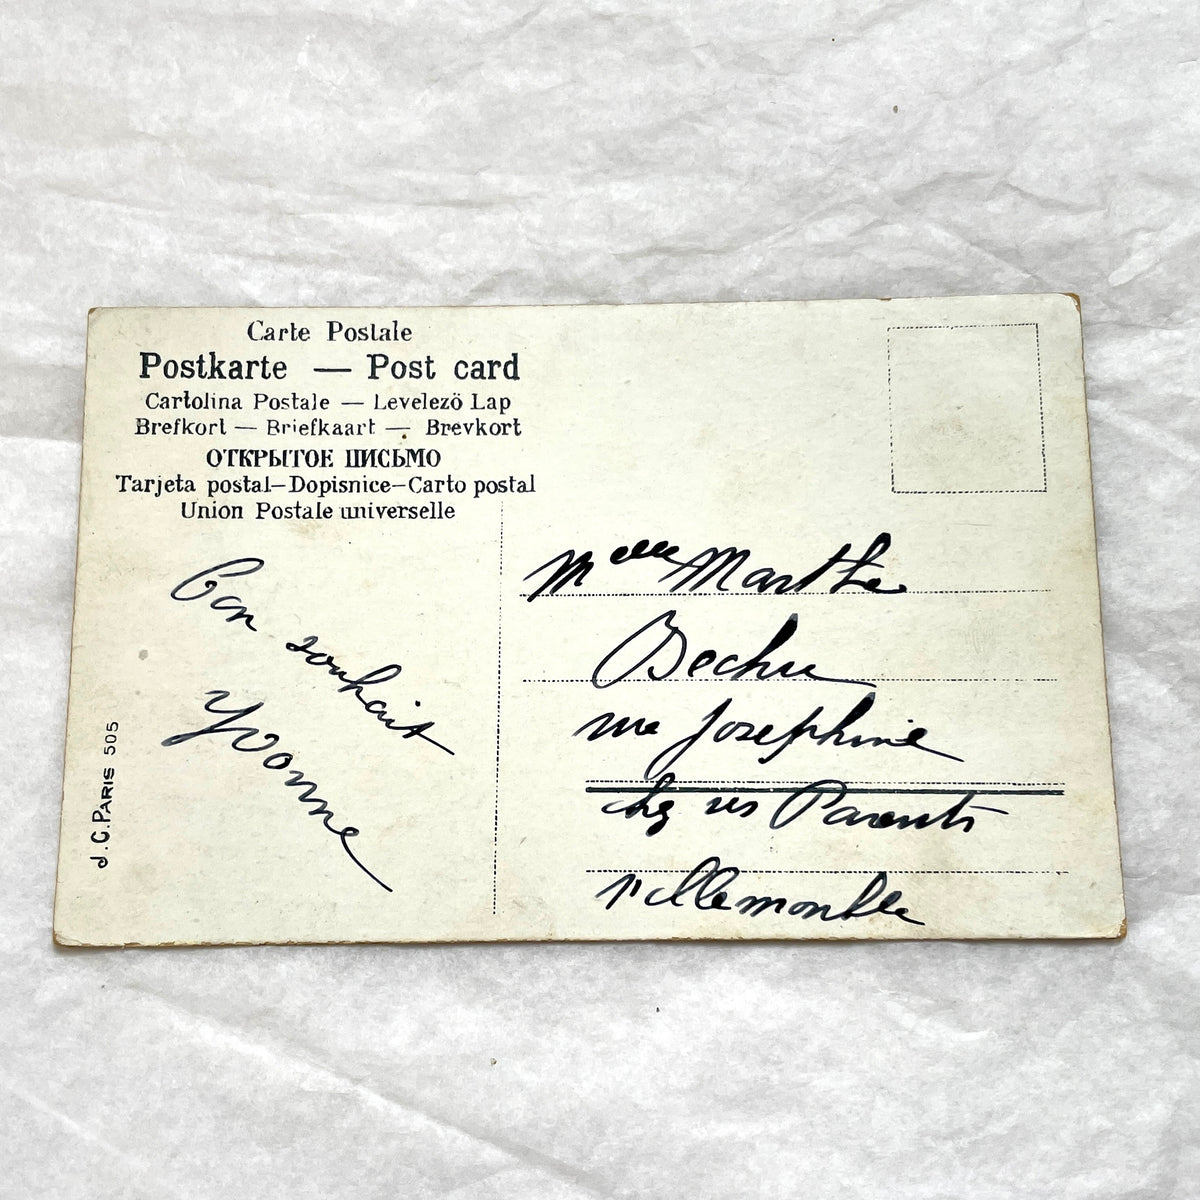 Carte Postale
Postkarte — Post card
Cartolina Postale — Levelezö Lap
Brefkort — Briefkaart — Brevkort
ОТКРЫТОЕ ПИСЬМО
Tarjeta postal—Dopisnice—Carto postal
Union Postale universelle
Bon souhait
Yvonne
J.C. PARIS 505
Melle Marthe
Bechu
Josephine
chez ses Parents
Villemomble